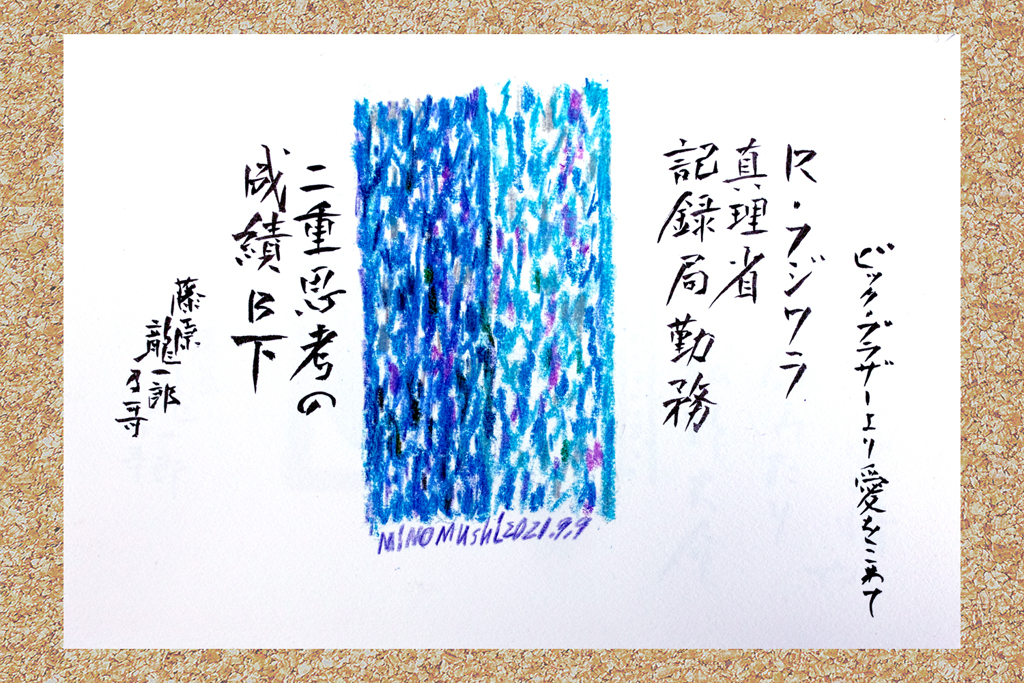 ビッグ・ブラザーより愛をこめて
R・フジワラ
真理省
記録局勤務
二重思考の
成績B下
藤原
龍一郎
MINOMUSHI 2021.9.9